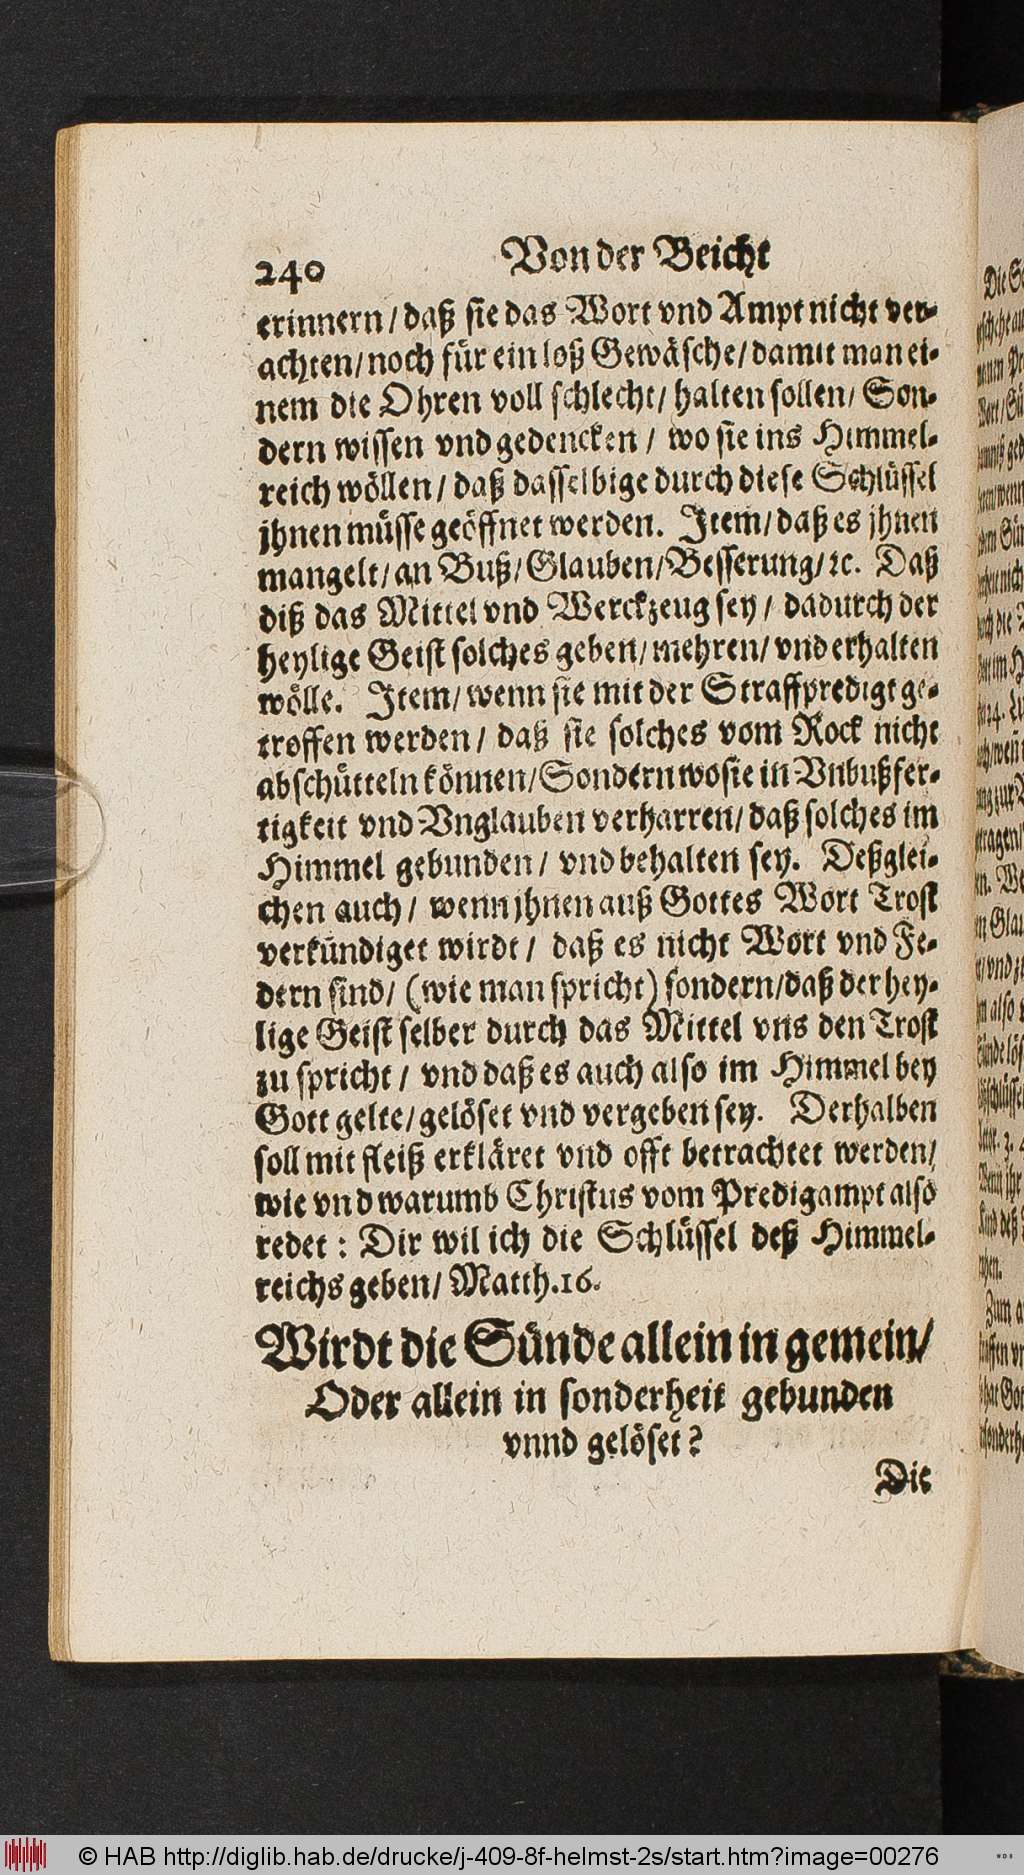 240 Von der Beicht
erinnern / daß sie das Wort vnd Ampt nicht ver-
achten / noch für ein loß Gewäsche / damit man ei-
nem die Ohren voll schlecht / halten sollen / Son-
dern wissen vnd gedencken / wo sie ins Himmel-
reich wöllen / daß dasselbige durch diese Schlüssel
jhnen müsse geöffnet werden. Item / daß es jhnen
mangelt / an Buß / Glauben / Besserung / ꝛc. Daß
diß das Mittel vnd Werckzeug sey / dadurch der
heylige Geist solches geben / mehren / vnd erhalten
wölle. Item / wenn sie mit der Straffpredigt ge-
troffen werden / daß sie solches vom Rock nicht
abschütteln können / Sondern wo sie in Vnbußfer-
tigkeit vnd Vnglauben verharren / daß solches im
Himmel gebunden / vnd behalten sey. Deßglei-
chen auch / wenn jhnen auß Gottes Wort Trost
verkündiget wirdt / daß es nicht Wort vnd Fe-
dern sind / (wie man spricht) sondern / daß der hey-
lige Geist selber durch das Mittel vns den Trost
zu spricht / vnd daß es auch also im Himmel bey
Gott gelte / gelöset vnd vergeben sey. Derhalben
soll mit fleiß erkläret vnd offt betrachtet werden /
wie vnd warumb Christus vom Predigampt also
redet : Dir wil ich die Schlüssel deß Himmel-
reichs geben / Matth. 16.
Wirdt die Sünde allein in gemein /
Oder allein in sonderheit gebunden
vnnd gelöset ?
Die
© HAB http://diglib.hab.de/drucke/j-409-8f-helmst-2s/start.htm?image=00276